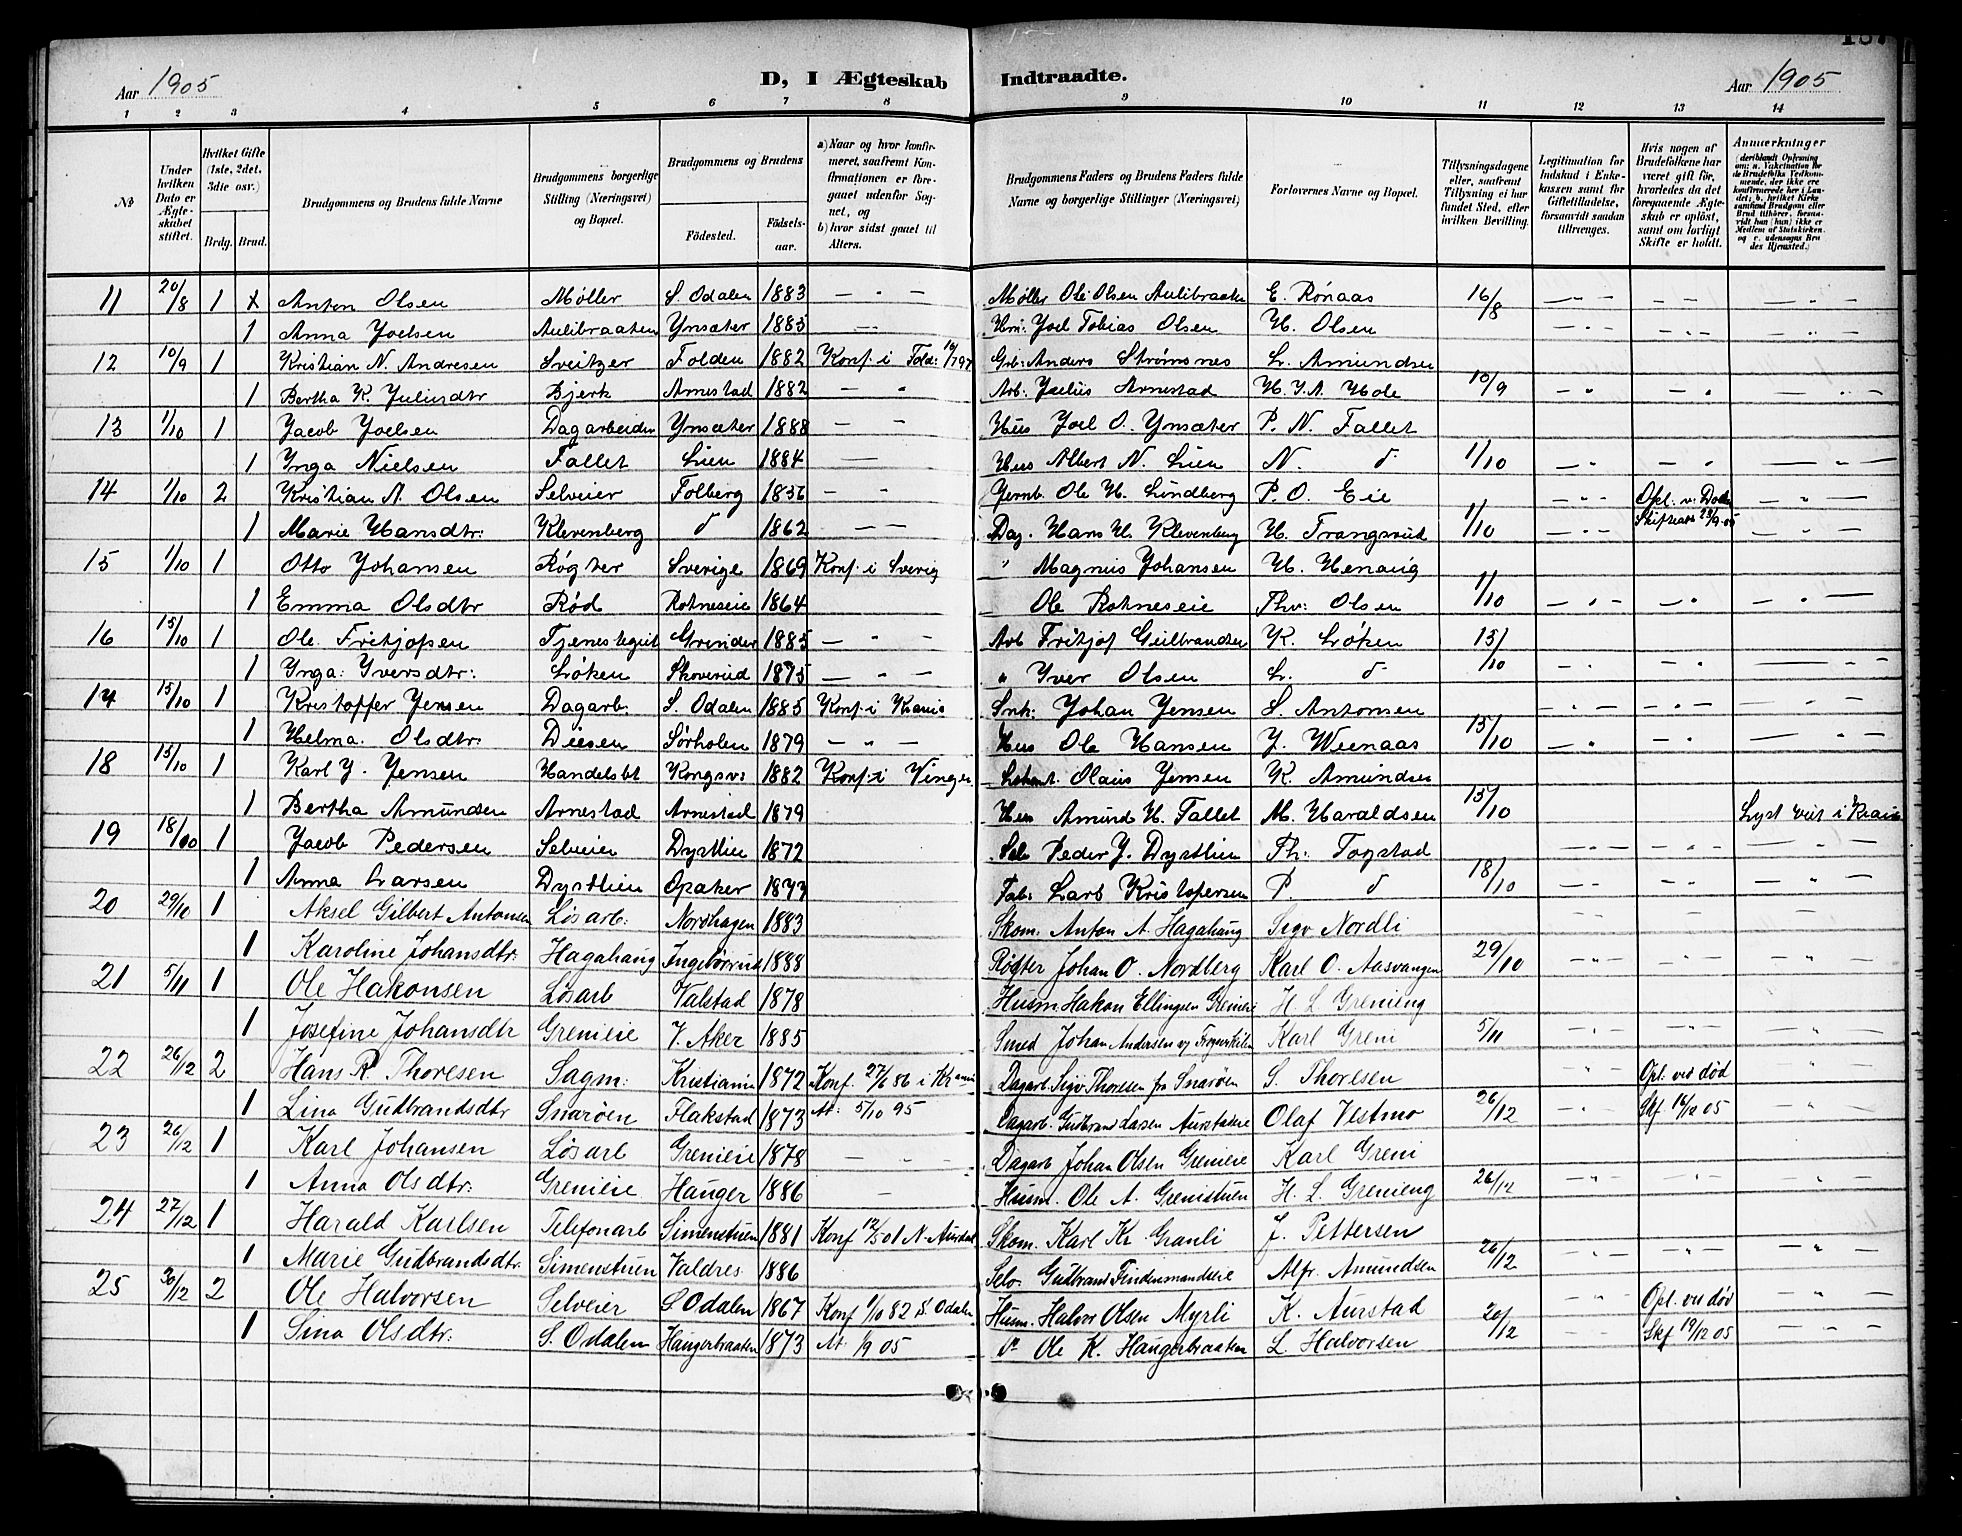 187
Aar 1905 D, I Ægteskab Indtraadte. Aar 1905
1 2 3 4 5 6 7 8 9 10 11 12 13 14
№ | Under hvilken Dato er Ægteskabet stiftet. | Hvilket Gifte (1ste, 2det, 3die osv.) Brdg. Brud. | Brudgommens og Brudens fulde Navne | Brudgommens borgerlige Stilling (Næringsvei) og Bopæl. | Brudgommens og Brudens Fødested. Fødselsaar. | a) Naar og hvor konfirmeret, saafremt Konfirmationen er foregaaet udenfor Sognet, og b) hvor sidst gaaet til Alters. | Brudgommens Faders og Brudens Faders fulde Navne og borgerlige Stillinger (Næringsvei) | Forlovernes Navne og Bopæl. | Tillysningsdagene eller, saafremt Tillysning ei har fundet Sted, efter hvilken Bevilling. | Legitimation for Indskud i Enkekassen samt for Giftetilladelse, forsaavidt saadan tiltrænges. | Hvis nogen af Brudefolkene har været gift før, hvorledes da det foregaaende Ægteskab er opløst, samt om lovligt Skifte er holdt. | Anmærkninger
11 20/8 1 Anton Olsen Møller S. Odalen 1883 — " — Møller Ole Olsen Aulibraaten E. Rönaas 16/8
1 Anna Joelsen Aulibraaten Ynsæter 1883 — Joel Tobias Olsen H. Olsen
12 10/9 1 Kristian N. Andresen Sveitzer Folden 1882 Konf. i Fold: Anders Strømsnes L. Amundsen
1 Bertha K. Juliusdtr Bjerk Arnestad 1882 — " Arb. Julius Arnestad H. J. A. Hole 10/9
13 1/10 1 Jacob Joelsen Dagarbeider Ynsæter 1888 — — Hus Joel O. Ynsæter P. N. Fallet
1 Inga Nielsen Fallet Lien 1884 — Hus Albert N. Lien N. d 1/10
14 1/10 2 Kristian A. Olsen Selveier Folberg 1836 — " Jernb. Ole H. Lindberg P. O. Eie Opl. v. Død
1 Marie Hansdtr: Klevenberg d 1862 — — Dag. Hans H. Klevenberg H. Trangsrud 1/10
15 1/10 1 Otto Johansen Røgter Sverige 1869 Konf. i Sverig " Magnus Johansen H. Henaug
1 Emma Olsdtr Röd Rotneseie 1864 Ole Rotneseie Thv: Olsen 1/10
16 15/10 1 Ole Fritjofsen Tjenestegut Grinder 1885 — " — Arb Fritjof Gulbrandsen K. Löken 15/10
1 Ynga: Yversdtr: Löken Skoverud 1875 — " — " Yver Olsen L. d
14 15/10 1 Kristoffer Jensen Dagarb. S. Odalen 1885 Konf. i Krania Snk: Johan Jensen S. Antonsen
1 Helma Olsdtr: Diesen Sørholen 1879 — " — Hus Ole Hansen J. Weenaas 15/10
18 15/10 1 Karl J. Jensen Handelsbt Kongsv: 1882 Konf. i Vinger Olaus Jensen K. Amundsen
1 Bertha Amundsen Arnestad Arnestad 1879 Hus Amund H. Fallet M. Haraldsen 15/10 Lyst i Krania
19 18/10 1 Jacob Pedersen Selveier Dystlien 1872 Selv Peder J. Dystlien Th: Togstad
1 Anna Larsen Dystlien Opaker 1873 Fab: Lars Kristofersen P. d 18/10
20 29/10 1 Aksel Gilbert Antonsen Løsarb: Nordhagen 1883 Skom: Anton A. Hagahaug Sigv Nordli
1 Karoline Johansdtr: Hagahaug Ingebørrud 1888 Røgter Johan O. Nordberg Karl O. Aasvangen 29/10
21 5/11 1 Ole Hakonsen Løsarb Valstad 1878 Husm Hakon Ellingsen Grenieie H. L. Grenieng
1 Josefine Johansdtr Grenieie V. Aker 1885 Smed Johan Andersen Karl Greni 5/11
22 26/12 2 Hans R. Thoresen Sagm: Kristiania 1872 Konf. 27/6 86 i Krania Dagarb. Sigv Thoresen fra Snarøen S. Thoresen Opl: ved død
1 Lina Gudbrandsdtr Snarøen Flakstad 1873 At: 5/10 95 Dagarb. Gudbrand Larsen Aurstadeie Olaf Vestmo 26/12 Skf. 16/12 05
23 26/12 1 Karl Johansen Løsarb Grenieie 1878 — " — Dagarb Johan Olsen Grenieie Karl Greni
1 Anna Olsdtr: Grenieie Hauger 1886 — Husm. Ole A. Grenistuen H. L. Grenieng 26/12
24 27/12 1 Harald Karlsen Telefonarb Simenstuen 1881 Konf 12/5 01 N. Aurdal Skom. Karl Kr. Granli J. Pettersen
1 Marie Gudbrandsdtr. Simenstuen Valdres 1886 Selv. Gudbrand Findensmandseie Alfr. Amundsen 26/12
25 30/12 2 Ole Halvorsen Selveier S. Odalen 1867 Konf 1/10 82 S. Odalen Husm. Halvor Olsen Myrli K. Aurstad Opl. ved død
1 Sina Olsdtr: S. Odalen Haugerbraaten 1873 At. 1/9 05 d Ole K. Haugerbraaten L. Halvorsen 20/12 Skf 19/12 05